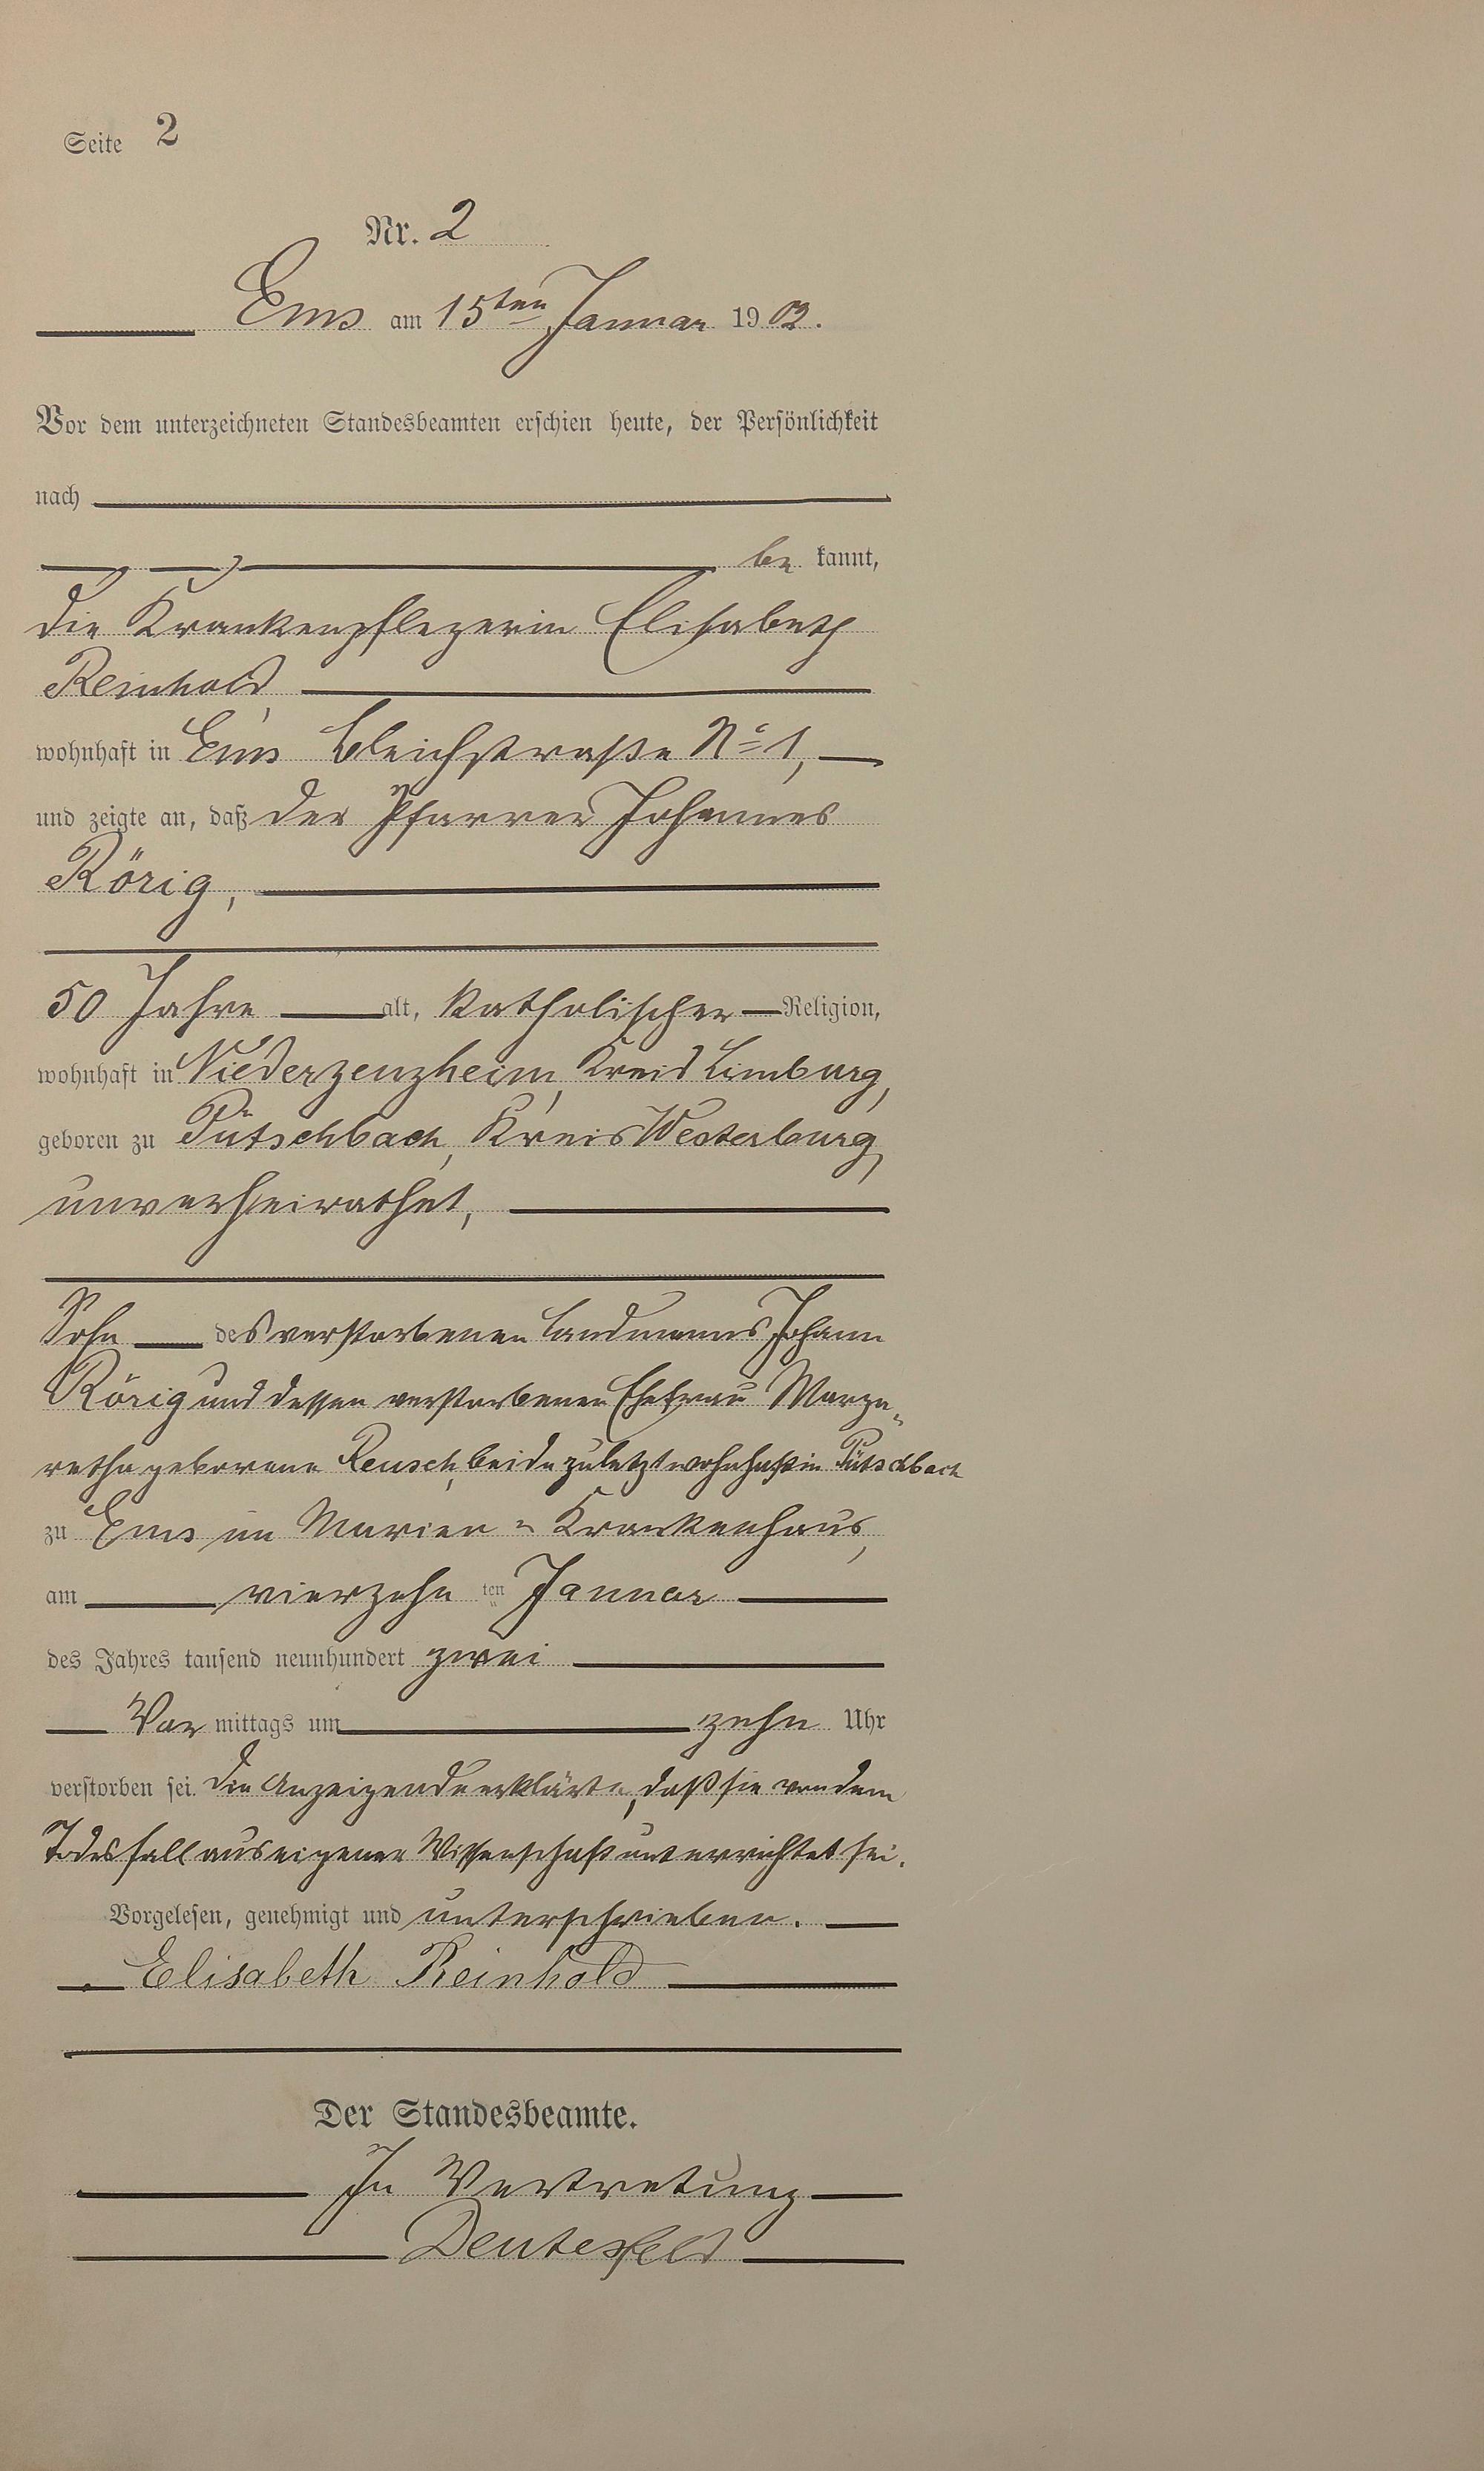 Seite 2
Nr. 2
Ems am 15ten Januar 1902.
Vor dem unterzeichneten Standesbeamten erschien heute, der Persönlichkeit
nach
be kannt,
die Krankenpflegerin Elisabeth
Reinhold,
wohnhaft in Ems Bleichstraße No 1,
und zeigte an, daß der Pfarrer Johannes
Rörig,
50 Jahre alt, katholischer Religion,
wohnhaft in Niederzeuzheim, Kreis Limburg,
geboren zu Pütschbach, Kreis Westerburg,
unverheirathet,
Sohn des verstorbenen Landmanns Johann
Rörig und dessen verstorbenen Ehefrau Marga-
retha geborene Reusch, beide zuletzt wohnhaft in Pütschbach
zu Ems im Marien-Krankenhaus,
am vierzehn ten Januar
des Jahres tausend neunhundert zwei
Vor mittags um zehn Uhr
verstorben sei. Die Anzeigende erklärte, daß sie von dem
Todesfall aus eigener Wissenschaft unterrichtet sei.
Vorgelesen, genehmigt und unterschrieben.
Elisabeth Reinhold
Der Standesbeamte.
In Vertretung
Deutesfeld